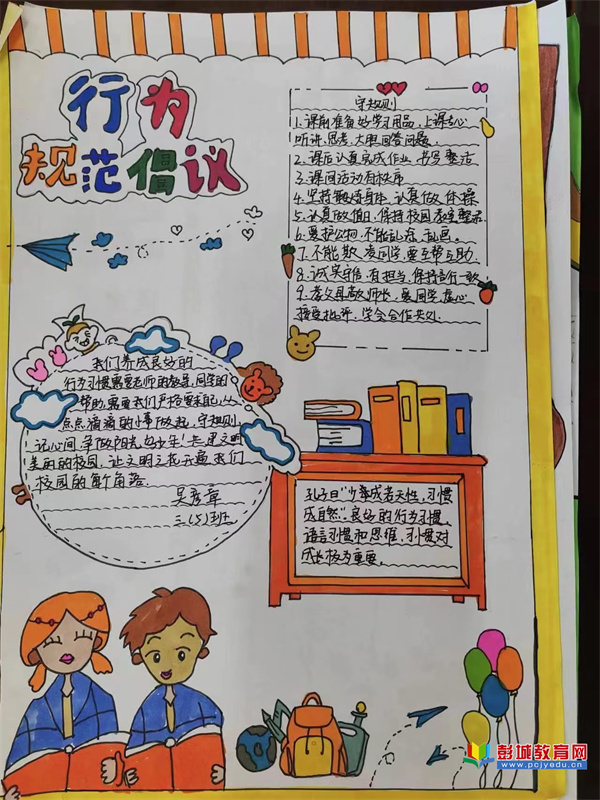 行为
规范倡议
守规则
1.课前准备好学习用品,上课专心
听讲、思考,大胆回答问题。
2.课后认真完成作业 书写整洁
3.课间活动有秩序
4.坚持锻炼身体,认真做体操
5.认真做值日,保持校园教室整洁
6.爱护公物,不能乱涂、乱画。
7.不能欺凌同学,要互帮互助
8.诚实守信,有担当,保持言行一致
9.孝父母敬师长,爱同学,虚心
接受批评,学会合作共处.
我们养成良好的
行为习惯需要老师的教导,同学的
帮助,需要我们严格要求自己,从
点点滴滴的小事做起,守规则
记心间,争做阳光好少年!
美丽的校园,让文明之花开遍我们
校园的每个角落.
吴彦章
三(5)班
孔子曰"少年成若天性,习惯
成自然",良好的行为习惯,
语言习惯和思维,习惯对
成长极为重要。
彭城教育网
www.pcjyedu.cn